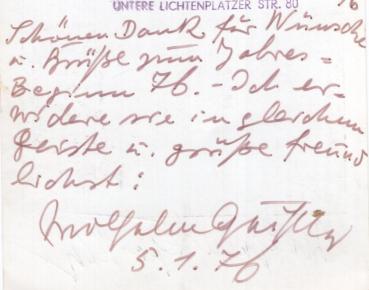 UNTERE LICHTENPLATZER STR. 80
76
Schönen Dank für Wünsche
u. Grüße zum Jahres=
Beginn 76. - Ich er=
widere sie in gleichem
Geiste u. grüße freund
lichst:
5.1.76